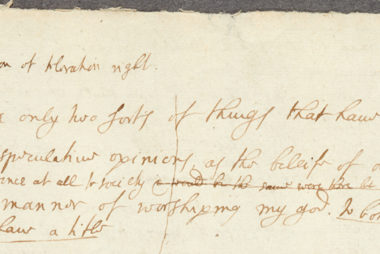 on of toleration right.
only two sorts of things that have
speculative opinions as the beliefe of
ence at all to society
manner of worshiping my god. to
have a title